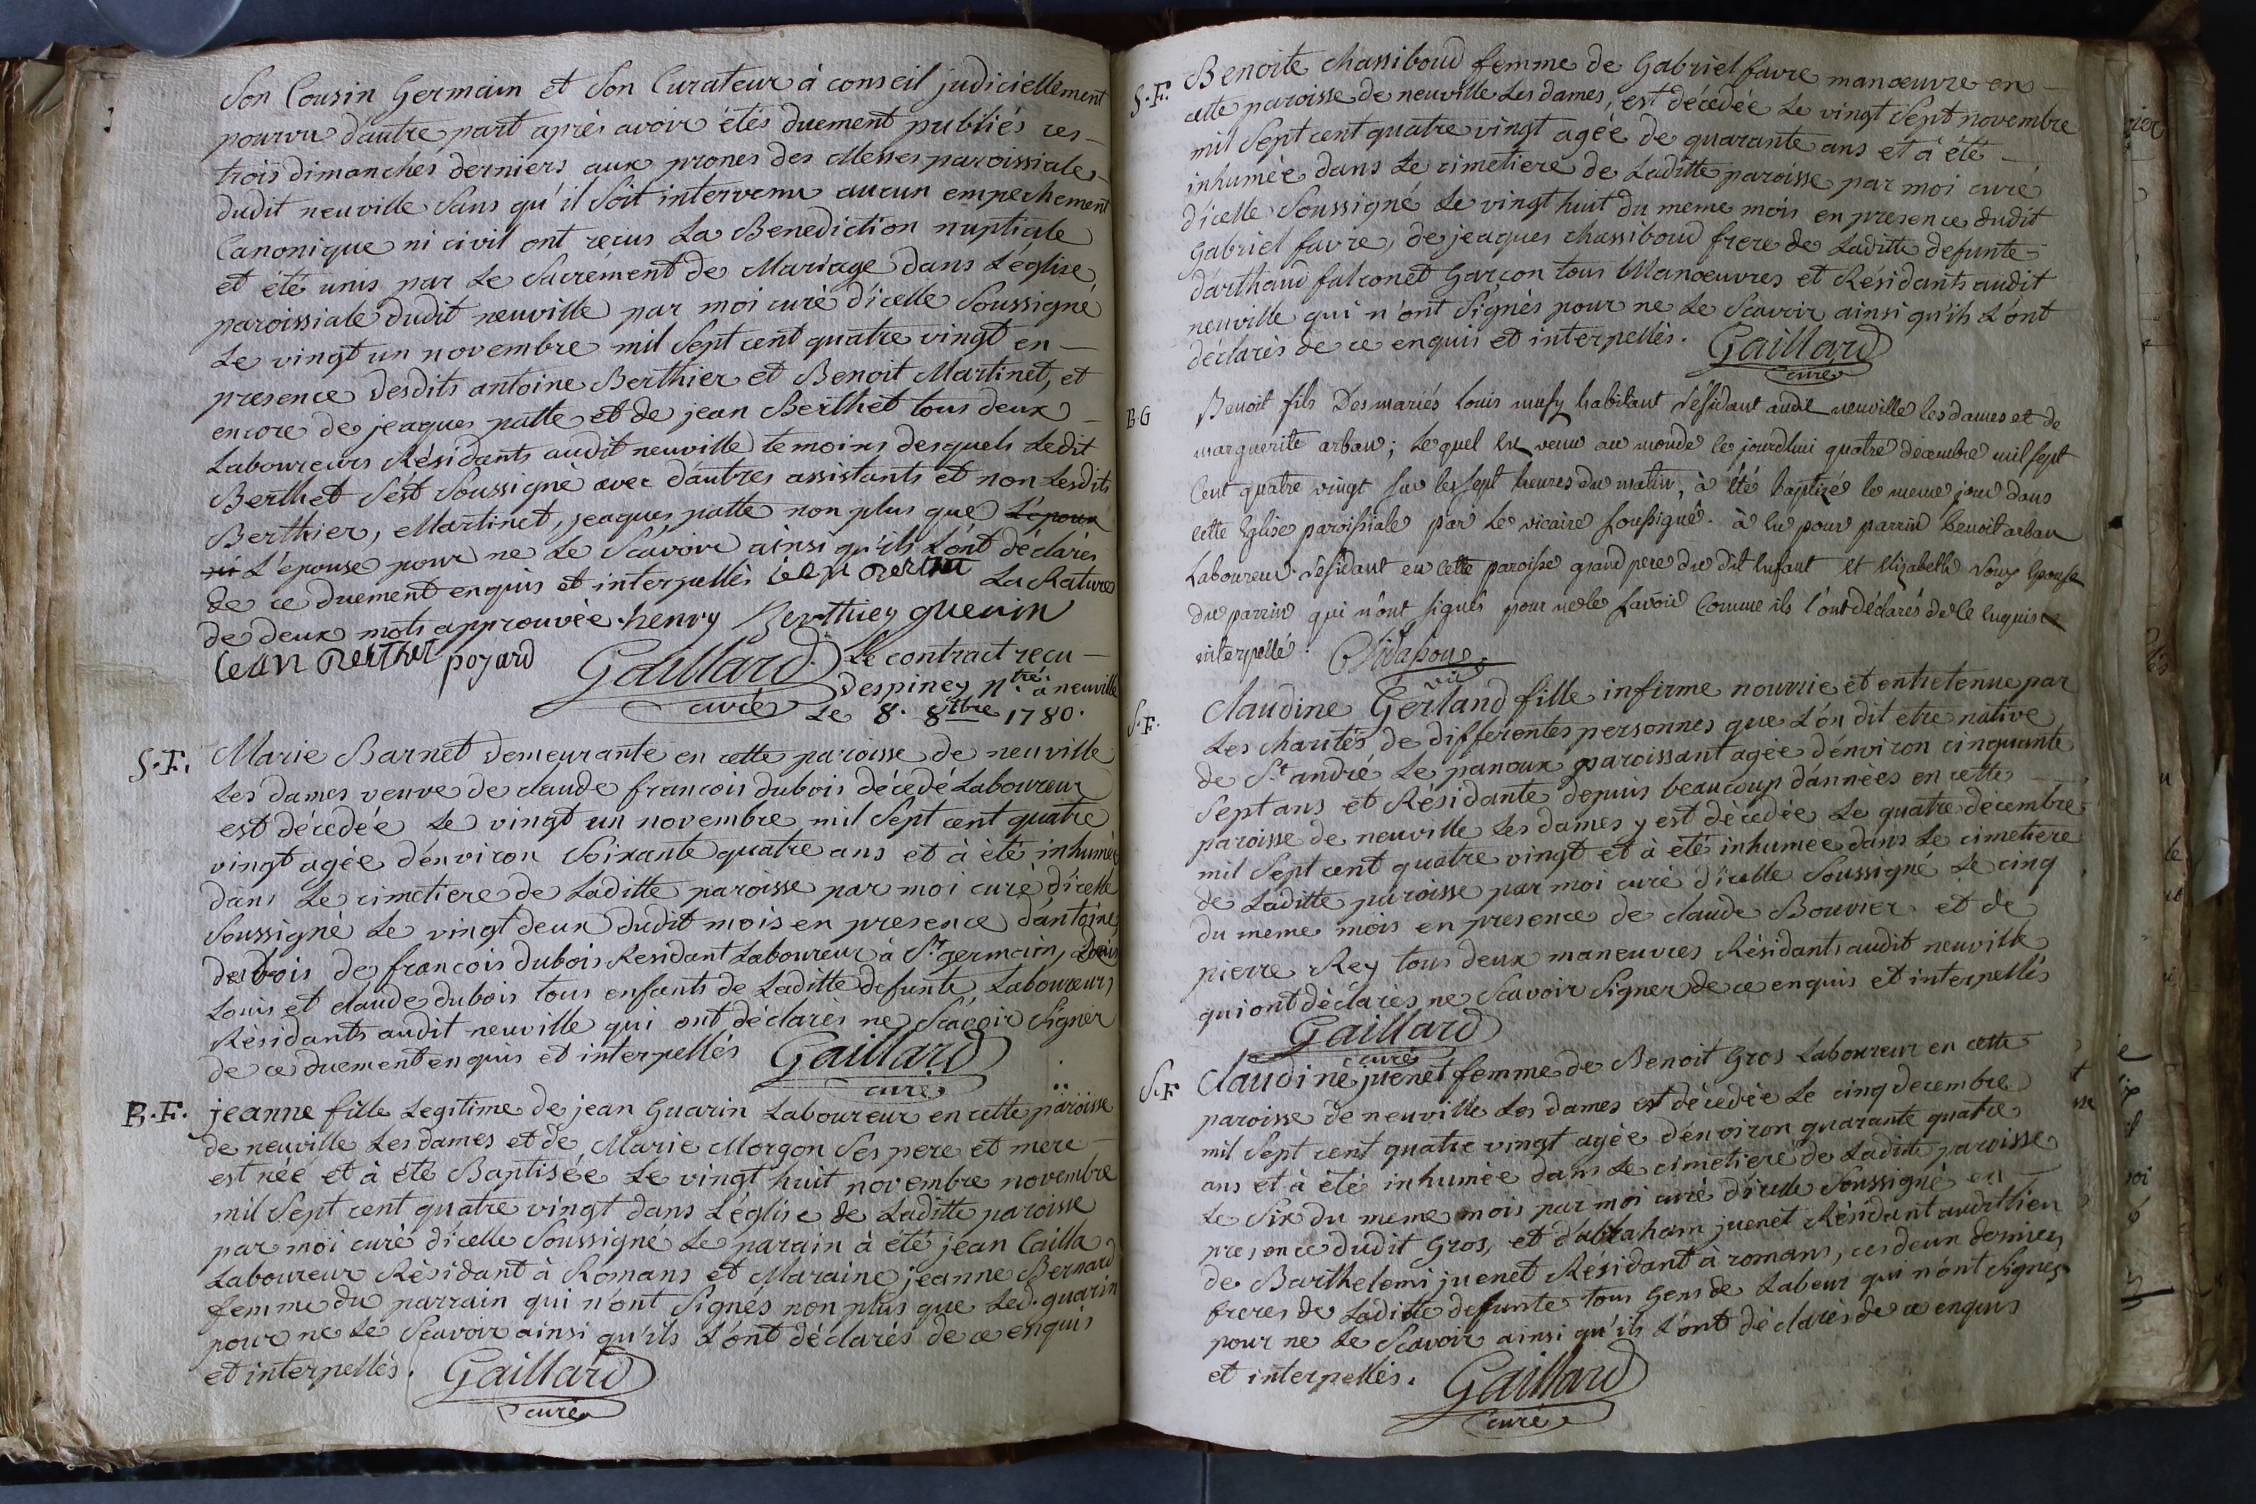 Son Cousin Germain et Son Curateur à conseil judiciellement
pourvu d'autre part après avoir étés duement publiés ces
trois dimanches derniers aux prones des Messes paroissiales
dudit neuville Sans qu'il Soit intervenu aucun empechement
Canonique ni civil ont recus La Benediction nuptiale
et été unis par Le Sacrément de Mariage dans L'église
paroissiale dudit neuville par moi curé d'icelle Soussigné
Le vingt un novembre mil Sept cent quatre vingt en
presence desdits antoine Berthier et Benoit Martinet, et
encore de jeaques patte et de jean Berthet tous deux
Laboureurs Résidants audit neuville temoins desquels Ledit
Berthet S'est Soussigné avec d'autres assistants et non Lesdits
Berthier, Martinet, jeaques patte non plus que L'époux
ni L'épouse pour ne Le Scavoir ainsi qu'ils L'ont déclarés
de ce duement enquis et interpellés jean Berthet La Rature
de deux mots approuvée. henry Berthier guerin
jean Berthet poyard Gaillard curé Le contract recu
Despiney Ntre. à neuville
Le 8. 8tbre 1780.
S.F. Marie Barnet demeurante en cette paroisse de neuville
Les dames veuve de claude francois dubois décédé Laboureur
est décedée Le vingt un novembre mil Sept cent quatre
vingt agée d'environ Soixante quatre ans et à été inhumée
dans Le cimetiere de Laditte paroisse par moi curé d'icelle
Soussigné Le vingt deux dudit mois en presence d'antoine
dubois de francois dubois Residant Laboureur à St germain,
Louis et claude dubois tous enfants de Laditte defunte Laboureurs
Résidants audit neuville qui ont déclarés ne Scavoir Signer
de ce duement enquis et interpellés Gaillard
curé
B.F. jeanne fille Legitime de jean Guarin Laboureur en cette paroisse
de neuville Les dames et de Marie Morgon Ses pere et mere
est née et à été Baptisée Le vingt huit novembre novembre
mil Sept cent quatre vingt dans L'église de Laditte paroisse
par moi curé d'icelle Soussigné Le parain à été jean Cailla
Laboureur Résidant à Romans et Maraine jeanne Bernard
femme du parrain qui n'ont Signés non plus que Led. guarin
pour ne Le Scavoir ainsi qu'ils L'ont déclarés de ce enquis
et interpellés. Gaillard
curé
S.F. Benoite chassiboud femme de Gabriel favre manœuvre en
cette paroisse de neuville Les dames, est décedée Le vingt Sept novembre
mil Sept cent quatre vingt agée de quarante ans et à été
inhumée dans Le cimetiere de Laditte paroisse par moi curé
d'icelle Soussigné Le vingt huit du meme mois en presence dudit
Gabriel favre, de jeaques chassiboud frere de Laditte defunte
d'arthaud falconet Garçon tous Manœuvres et Résidants audit
neuville qui n'ont Signés pour ne Le Scavoir ainsi qu'ils L'ont
déclarés de ce enquis et interpellés. Gaillard
curé
BG Benoit fils Des mariés Louis habitant résidant audit neuville les dames et de
marguerite arban; Lequel est venu au monde ce jourd'hui quatre décembre mil sept
Cent quatre vingt sur les sept heures du matin, à été baptizé le meme jour dans
cette Eglise paroissiale par le vicaire soussigné. à eu pour parrin benoit arban
Laboureur résidant en cette paroisse grand pere du dit Enfant et Elizabeth épouse
du parrin qui n'ont signés pour ne le savoir comme ils l'ont déclarés de ce enquis et
interpellé.
vic
S.F. Claudine Gerland fille infirme nourrie et entretenue par
Les charités de differentes personnes que L'on dit etre native
de St andré Le panoux paroissant agée d'environ cinquante
Sept ans et Résidante depuis beaucoup d'années en cette
paroisse de neuville Les dames y est décedée Le quatre décembre
mil Sept cent quatre vingt et à été inhumée dans Le cimetiere
de Laditte paroisse par moi curé d'icelle Soussigné Le cinq
du meme mois en presence de claude Bouvier et de
pierre Rey tous deux maneuvres Résidants audit neuville
qui ont déclarés ne Scavoir Signer de ce enquis et interpellés
Gaillard
curé
S.F Claudine juenet femme de Benoit Gros Laboureur en cette
paroisse de neuville Les dames est décedée Le cinq decembre
mil Sept cent quatre vingt agée d'environ quarante quatre
ans et à été inhumée dans Le cimetiere de Laditte paroisse
Le Six du meme mois par moi curé d'icelle Soussigné en
presence dudit Gros, et d'abraham juenet Résidant audit lieu
de Barthelemi juenet Résidant à romans, ces deux derniers
freres de Laditte defunte tous Gens de Labeur qui n'ont Signés
pour ne Le Scavoir ainsi qu'ils L'ont déclarés de ce enquis
et interpellés. Gaillard
curé